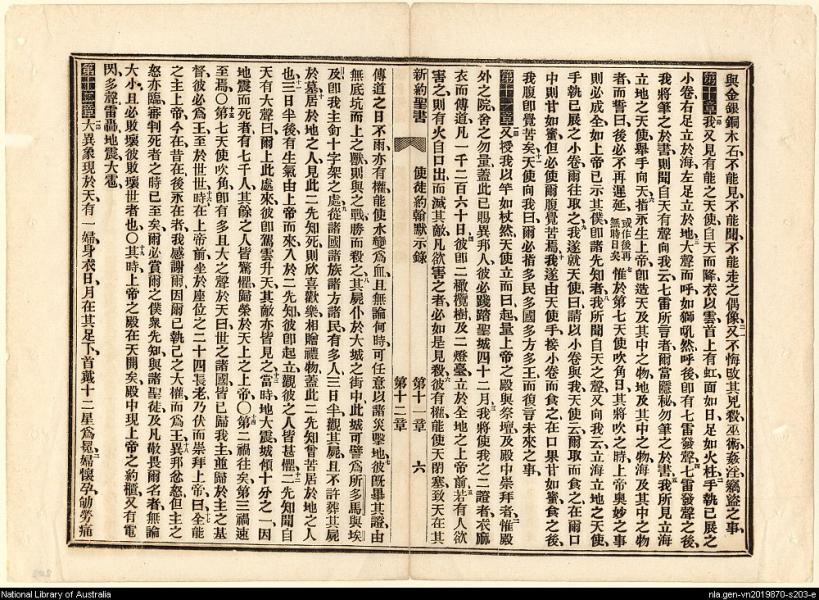 與金銀銅木石不能見不能聞不能走之偶像又不悔改其兇殺巫術姦淫竊盜之事
第十章我又見有能之天使自天而降衣以雲首上有虹面如日足如火柱手執已展之
小卷右足立於海左足立於地大聲而呼如獅吼然呼後卽有七雷發聲七雷發聲之後
我將筆之於書則聞自天有聲向我云七雷所言者爾當隱秘勿筆之於書我所見立海
立地之天使舉手向天指永生上帝卽造天及其中之物地及其中之物海及其中之物
者而誓曰後必不再遲延或作後再無時日矣惟於第七天使吹角日其將吹之時上帝奧妙之事
則必成全如上帝已示其僕卽諸先知者我所聞自天之聲又向我云立海立地之天使
手執已展之小卷爾往取之我遂就天使曰請以小卷與我天使云爾取而食之在爾口
中則甘如蜜但必使爾腹覺苦焉我遂由天使手接小卷而食之在口果甘如蜜食之後
我腹卽覺苦矣天使向我曰爾必指多民多國多方多王而復言未來之事
第十一章又授我以竿如杖然天使立而曰起量上帝之殿與祭壇及殿中崇拜者惟殿
外之院舍之勿量蓋此已賜異邦人彼必踐踏聖城四十二月我將使我之二證者衣麻
衣而傳道凡一千二百六十日彼卽二橄欖樹及二燈臺立於全地之上帝前若有人欲
害之則有火自口出而滅其敵凡欲害之者必如是見殺彼有權能使天閉塞致天在其
新約聖書 使徒約翰默示錄 第十一章 第十二章 六
傳道之日不雨亦有權能使水變爲血且無論何時可任意以諸災擊地彼旣畢其證由
無底坑而上之獸則與之戰勝而殺之其屍仆於大城之街中此城可譬爲所多馬與埃
及卽我主釘十字架之處從諸國諸族諸方諸民有多人三日半觀其屍且不許葬其屍
於墓居於地之人見此二先知死則欣喜歡樂相贈禮物蓋此二先知曾苦居於地之人
也三日半後有生氣由上帝而來入於二先知彼卽起立觀彼之人皆甚懼二先知聞自
天有大聲曰爾上此處來彼卽駕雲升天其敵亦皆見之當時地大震城傾十分之一因
地震而死者有七千人其餘之人皆驚懼歸榮於天上之上帝〇第二禍往矣第三禍速
至焉〇第七天使吹角卽有多且大之聲於天曰世之諸國皆已歸我主並歸於主之基
督彼必爲王至於世世時在上帝前坐於座位之二十四長老乃伏而崇拜上帝曰全能
之主上帝今在昔在後永在者我感謝爾因爾已執己之大權而爲王異邦忿怒但主之
怒亦臨審判死者之時已至矣爾必賞爾之僕衆先知與諸聖徒及凡敬畏爾名者無論
大小且必敗壞彼敗壞世者也〇其時上帝之殿在天開矣殿中現上帝之約櫃又有電
閃多聲雷轟地震大雹
第十二章大異象現於天有一婦身衣日月在其足下首戴十二星爲冕婦懷孕劬勞痛
National Library of Australia
nla.gen-vn2019870-s203-e